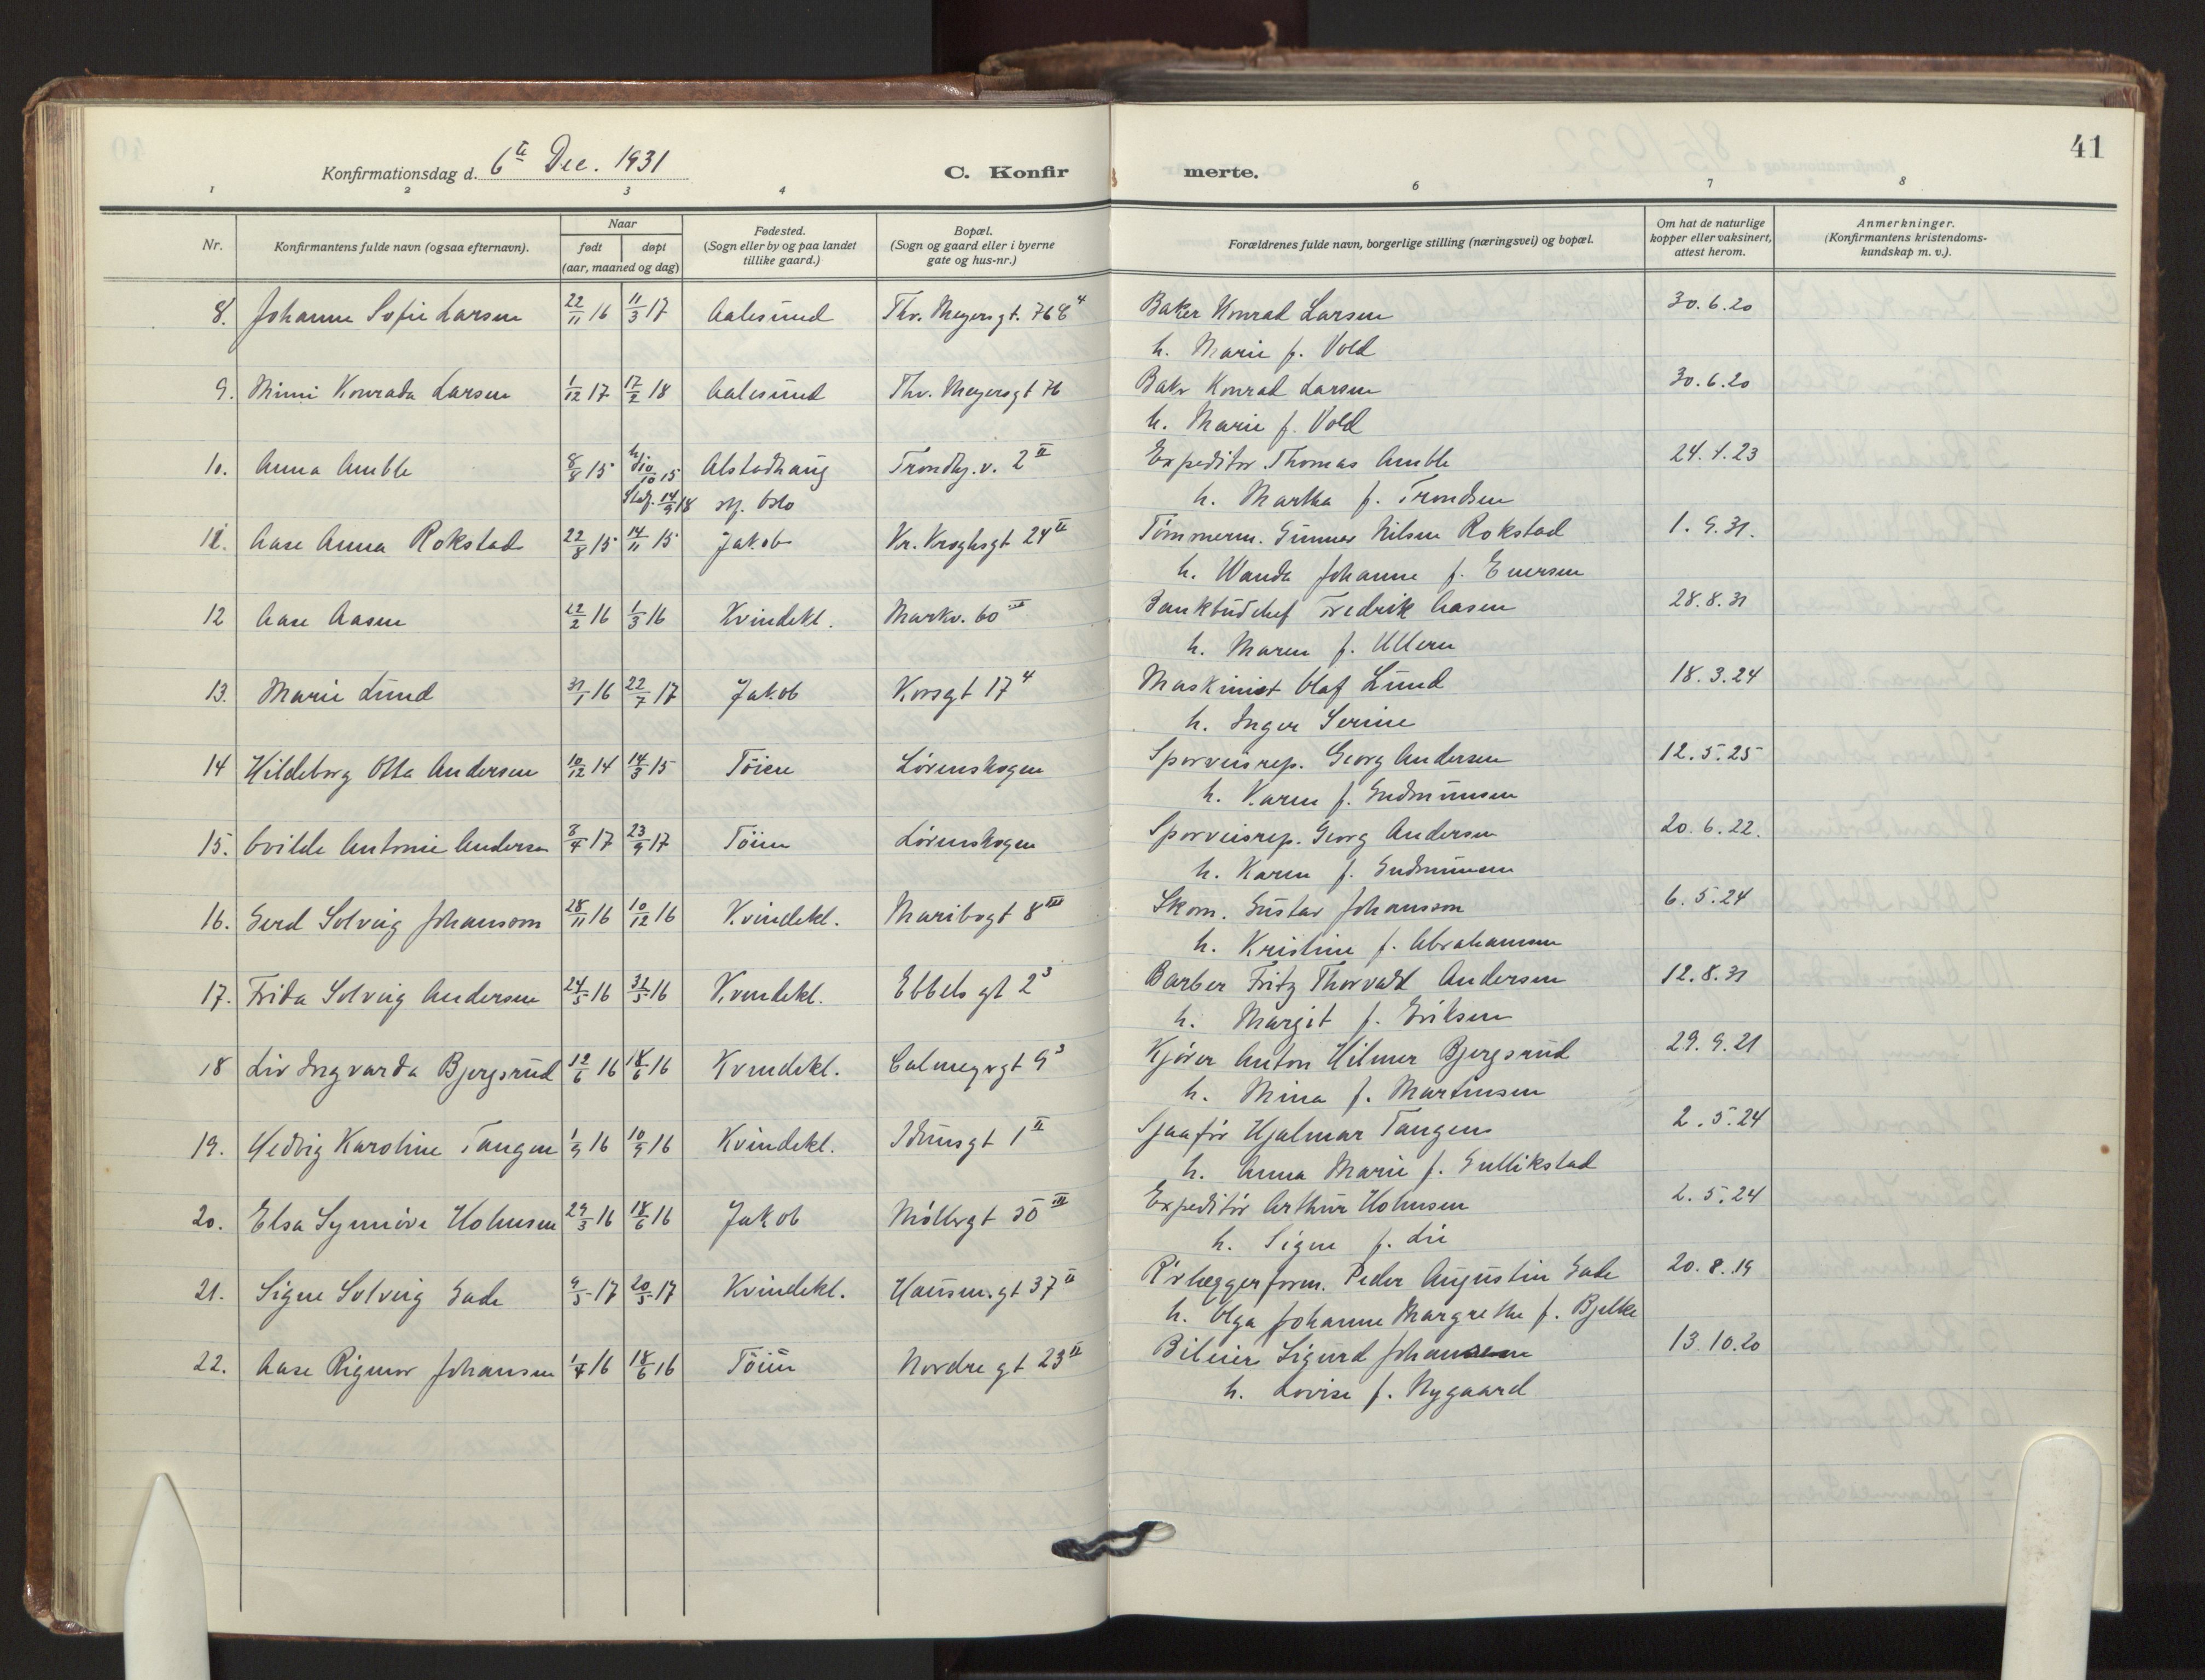 41
Konfirmationsdag d. 6te Dec. 1931
C. Konfir merte.
1 2 3 4 6 7 8
Nr.
Konfirmantens fulde navn (ogsaa efternavn).
Naar
født døpt
(aar, maaned og dag)
Fødested.
(Sogn eller by og paa landet
tillike gaard.)
Bopæl.
(Sogn og gaard eller i byerne
gate og hus-nr.)
Forældrenes fulde navn, borgerlige stilling (næringsvei) og bopæl.
Om hat de naturlige
kopper eller vaksinert,
attest herom.
Anmerkninger.
(Konfirmantens kristendoms-
kundskap m. v.).
8. Johanne Sofie Larsen 22/11 16 11/3 17 Aalesund Thv. Meyersgt. 4 Baker Konrad Larsen 30.6.20
h. Marie f. Vold
9. Mimi Konrada Larsen 1/12 17 17/2 18 Aalesund Thv. Meyersgt 76 Baker Konrad Larsen 30.6.20
h. Marie f. Vold
10. Anna Amble 8/8 15 10/10 15 Alstadhaug Trondhj.v. 2 II Expeditør Thomas Amble 24.1.23
14/9 18 Oslo h. Martha f. Trondsen
11. Aase Anna Rokstad 22/8 15 14/11 15 Jakob Kr. Kroghsgt 24 II Tømmerm. Gunnar Nilsen Rokstad 1.9.31.
h. Wanda Johanne f. Enersen
12 Aase Aasen 22/2 16 1/3 16 Kvindekl. Markv. 60 III Bankbudchef Fredrik Aasen 28.8.31
h. Maren f. Ullern
13. Marie Lund 31/1 16 22/7 17 Jakob Korsgt 17 4 Maskinist Olaf Lund 18.3.24
h. Inger Serine
14 Hildeborg Otta Andersen 10/12 14 14/3 15 Tøien Lørenskogen Sporveisrep. Georg Andersen 12.5.25
h. Karen f. Gudmunsen
15. Ovilde Antonie Andersen 8/4 17 23/9 17 Tøien Lørenskogen Sporveisrep. Georg Andersen 20.6.22.
h. Karen f. Gudmunsen
16. Gerd Solveig Johansson 28/11 16 10/12 16 Kvindekl. Maribogt 8 III Skom. Gustav Johansson 6.5.24
h. Kristine f. Abrahamsen
17. Frida Solveig Andersen 24/5 16 31/5 16 Kvindekl. Ebbels gt 2 3 Barber Fritz Thorvald Andersen 12.8.31
h. Margit f. Eriksen
18 Liv Ingvarda Bjergsrud 12/6 16 18/6 16 Kvindekl. Calmeyrgt 9 3 Kjører Anton Hilmer Bjergsrud 29.9.21
h. Mina f. Martinsen
19. Hedvig Karoline Tangen 1/9 16 10/9 16 Kvindekl. Idunsgt 1 II Sjaafør Hjalmar Tangen 2.5.24
h. Anna Marie f. Gullikstad
20. Elsa Synnøve Holmsen 29/3 16 18/6 16 Jakob Møllergt 30 III Expeditør Arthur Holmsen 2.5.24
h. Signe f. Lie
21. Signe Solveig Gade 9/5 17 20/5 17 Kvindekl. Hausm.gt 37 II Rørlæggerform. Peder Augustin Gade 20.8.19
h. Olga Johanne Margrethe f. Bjelke
22. Aase Rigmor Johansen 1/4 16 18/6 16 Tøien Nordre gt 23 II Bileier Sigurd Johansen 13.10.20
h. Lovise f. Nygaard